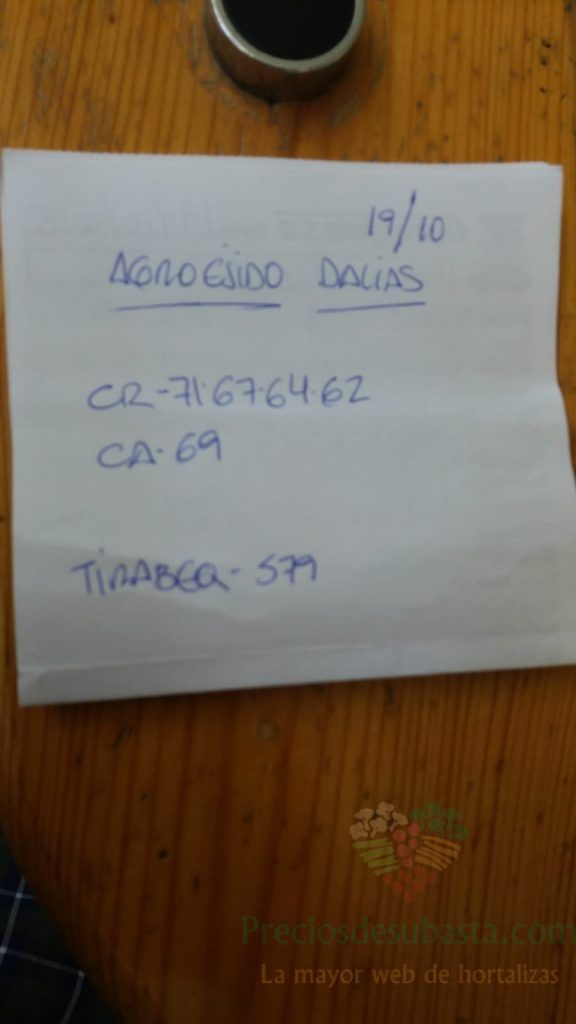 19/10
AGROEJIDO DALIAS
CR-71·67·64·62
CA·69
TIRABEQ- 579
Preciosdesubasta.com
La mayor web de hortalizas